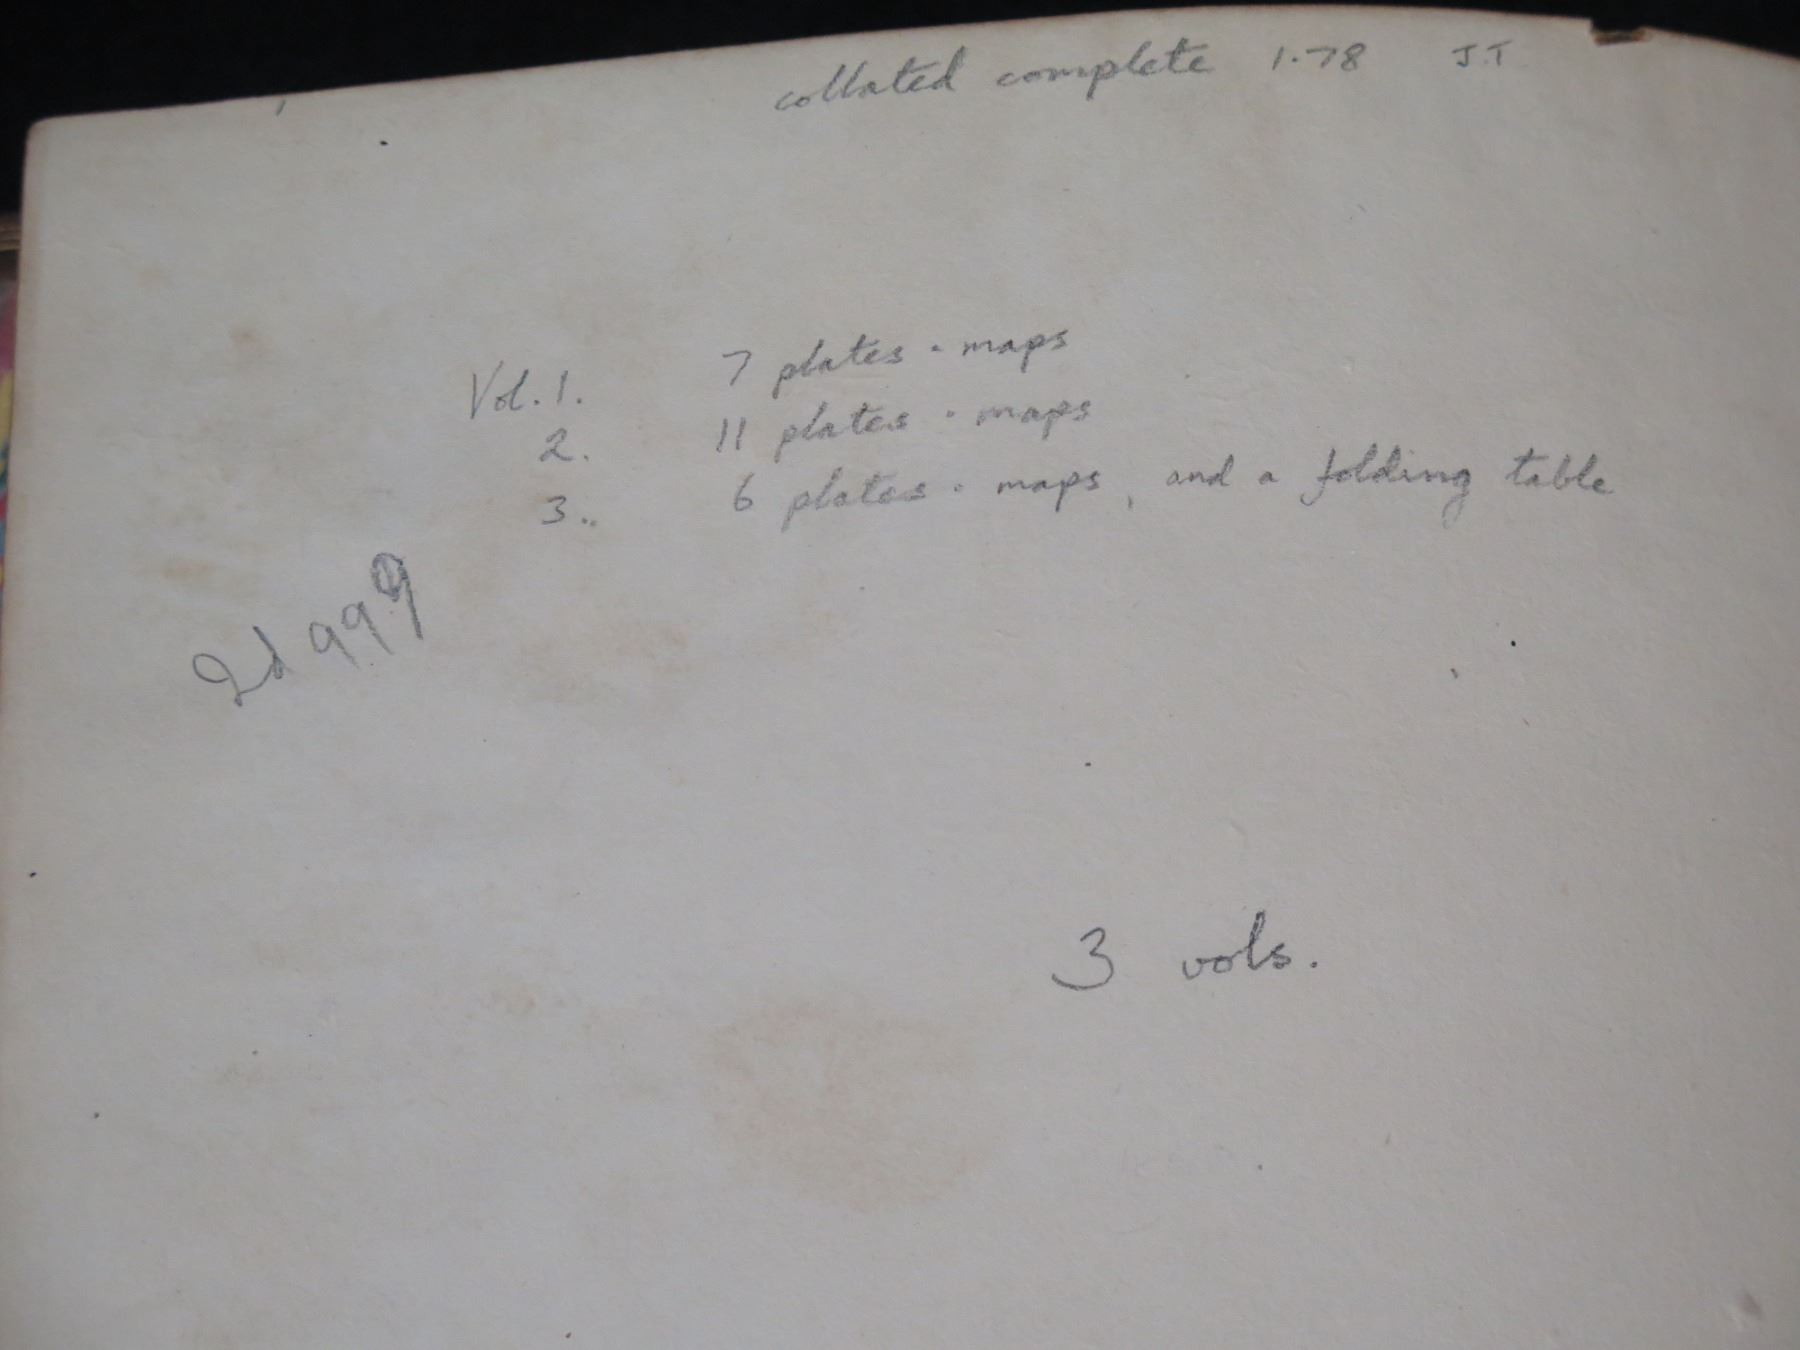 collated complete 1.78 J.T
Vol. 1. 7 plates - maps
2. 11 plates - maps
3.. 6 plates - maps, and a folding table
999
3 vols.